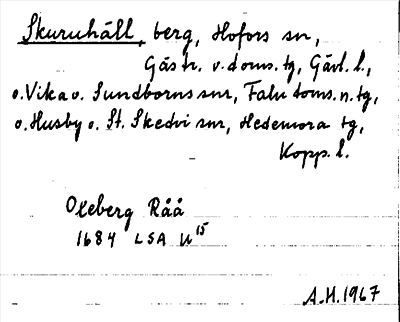 Skuruhäll, berg, Hofors sn,
Gästr. v. doms. tg, Gävl. l.,
o. Vika o. Sundborns snr, Falu doms. n. tg,
o. Husby o. St. Skedvi snr, Hedemora tg,
Kopp. l.
Oleberg Råå
1684 LSA U 15
A.H. 1967